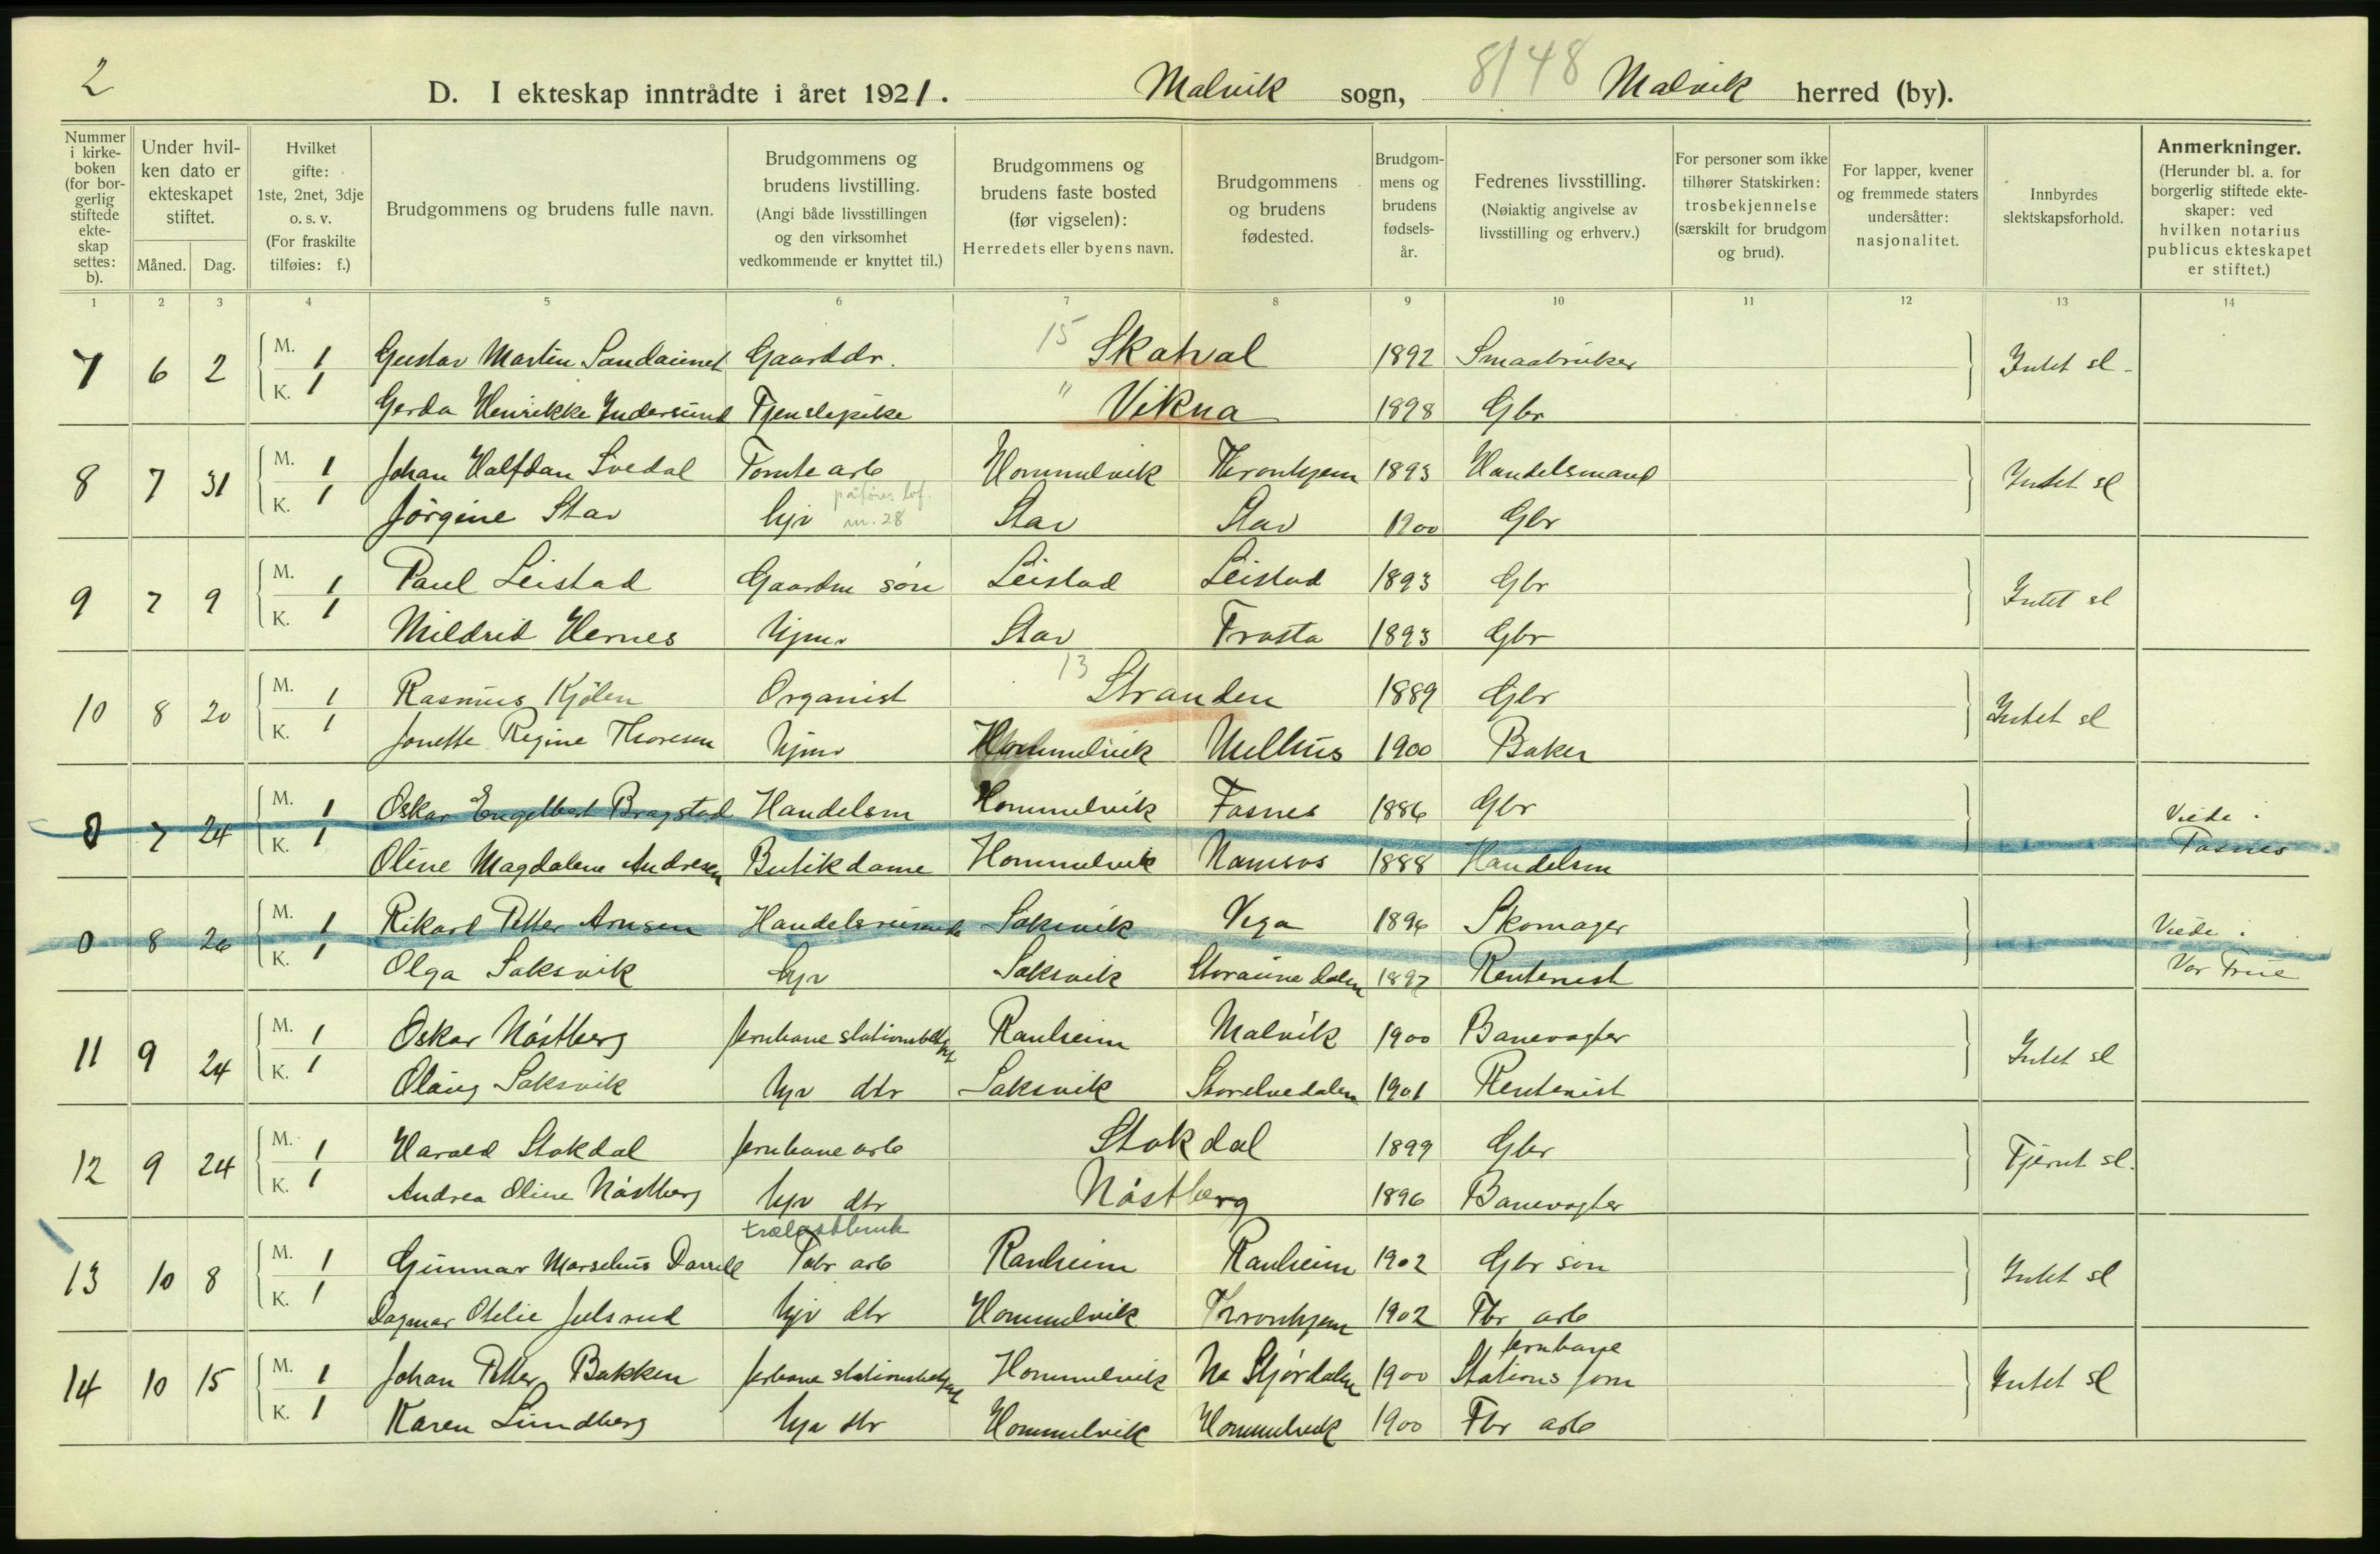 2
D. I ekteskap inntrådte i året 1921. Malvik sogn, 8/48 Malvik herred (by).
Nummer i kirkeboken (for borgerlig stiftede ekteskap settes: b).
Under hvilken dato er ekteskapet stiftet.
Måned. Dag.
Hvilket gifte: 1ste, 2net, 3dje o. s. v. (For fraskilte tilføies: f.)
Brudgommens og brudens fulle navn.
Brudgommens og brudens livstilling. (Angi både livsstillingen og den virksomhet vedkommende er knyttet til.)
Brudgommens og brudens faste bosted (før vigselen): Herredets eller byens navn.
Brudgommens og brudens fødested.
Brudgommens og brudens fødselsår.
Fedrenes livsstilling. (Nøiaktig angivelse av livsstilling og erhverv.)
For personer som ikke tilhører Statskirken: trosbekjennelse (særskilt for brudgom og brud).
For lapper, kvener og fremmede staters undersåtter: nasjonalitet.
Innbyrdes slektskapsforhold.
Anmerkninger. (Herunder bl. a. for borgerlig stiftede ekteskaper: ved hvilken notarius publicus ekteskapet er stiftet.)
1 2 3 4 5 6 7 8 9 10 11 12 13 14
7 6 2 M. 1 Gustav Martin Sandaunet Gaarddr. 15 Skatval 1892 Smaabruker Intet sl
K. 1 Gerda Henrikke Indersund Tjenslepike " Vikna 1898 Gbr
8 7 31 M. 1 Johan Halfdan Svedal Tomte arb Hommelvik Thronhjem 1893 Handelsmand Intet sl
K. 1 Jörgine Stav hjv påføres lof. nr. 28 Stav Stav 1900 Gbr
9 7 9 M. 1 Paul Leistad Gaardm søn Leistad Leistad 1893 Gbr Intet sl
K. 1 Mildrid Hernes hjmv Stav Frosta 1893 Gbr
10 8 20 M. 1 Rasmus Kjölen Organist 13 Stranden 1889 Gbr Intet sl
K. 1 Jonette Regine Thoresen hjmv Hommelvik Melhus 1900 Baker
0 7 24 M. 1 Oskar Engelbert Bragstad Handelsm Hommelvik Fosnes 1886 Gbr Viede i
K. 1 Oline Magdalene Andresen Butikdame Hommelvik Namsos 1888 Handelsm Fosnes
0 8 26 M. 1 Rikard Petter Arnsen Handelsreisende Saksvik Vega 1896 Skomager Viede i
K. 1 Olga Saksvik hjv Saksvik 1897 Rentenist Vor Frue
11 9 24 M. 1 Oskar Nástberg Jernbane stationsbetjent Ranheim Malvik 1900 Banevogter Intet sl
K. 1 Olaug Saksvik hjv dtr Saksvik Storelvedalen 1901 Rentenist
12 9 24 M. 1 Harald Stokdal Jernbane arb Stokdal 1899 Gbr Fjernt sl.
K. 1 Andrea Oline Nástberg hjv dtr Nástberg 1896 Banevogter
trælastbruk
13 10 8 M. 1 Gunnar Marselius Fabr arb Ranheim Ranheim 1902 Gbr søn Intet sl
K. 1 Dagmar Otelie Julsrud hjv dtr Hommelvik Thronhjem 1902 Fbr arb
jernbane
14 10 15 M. 1 Johan Petter Bakken Jerbane stationsbetjent Hommelvik Ne Stjørdalen 1900 Stations form Intet sl
K. 1 Karen Lundberg hjv dtr Hommelvik Hommelvik 1900 Fbr arb